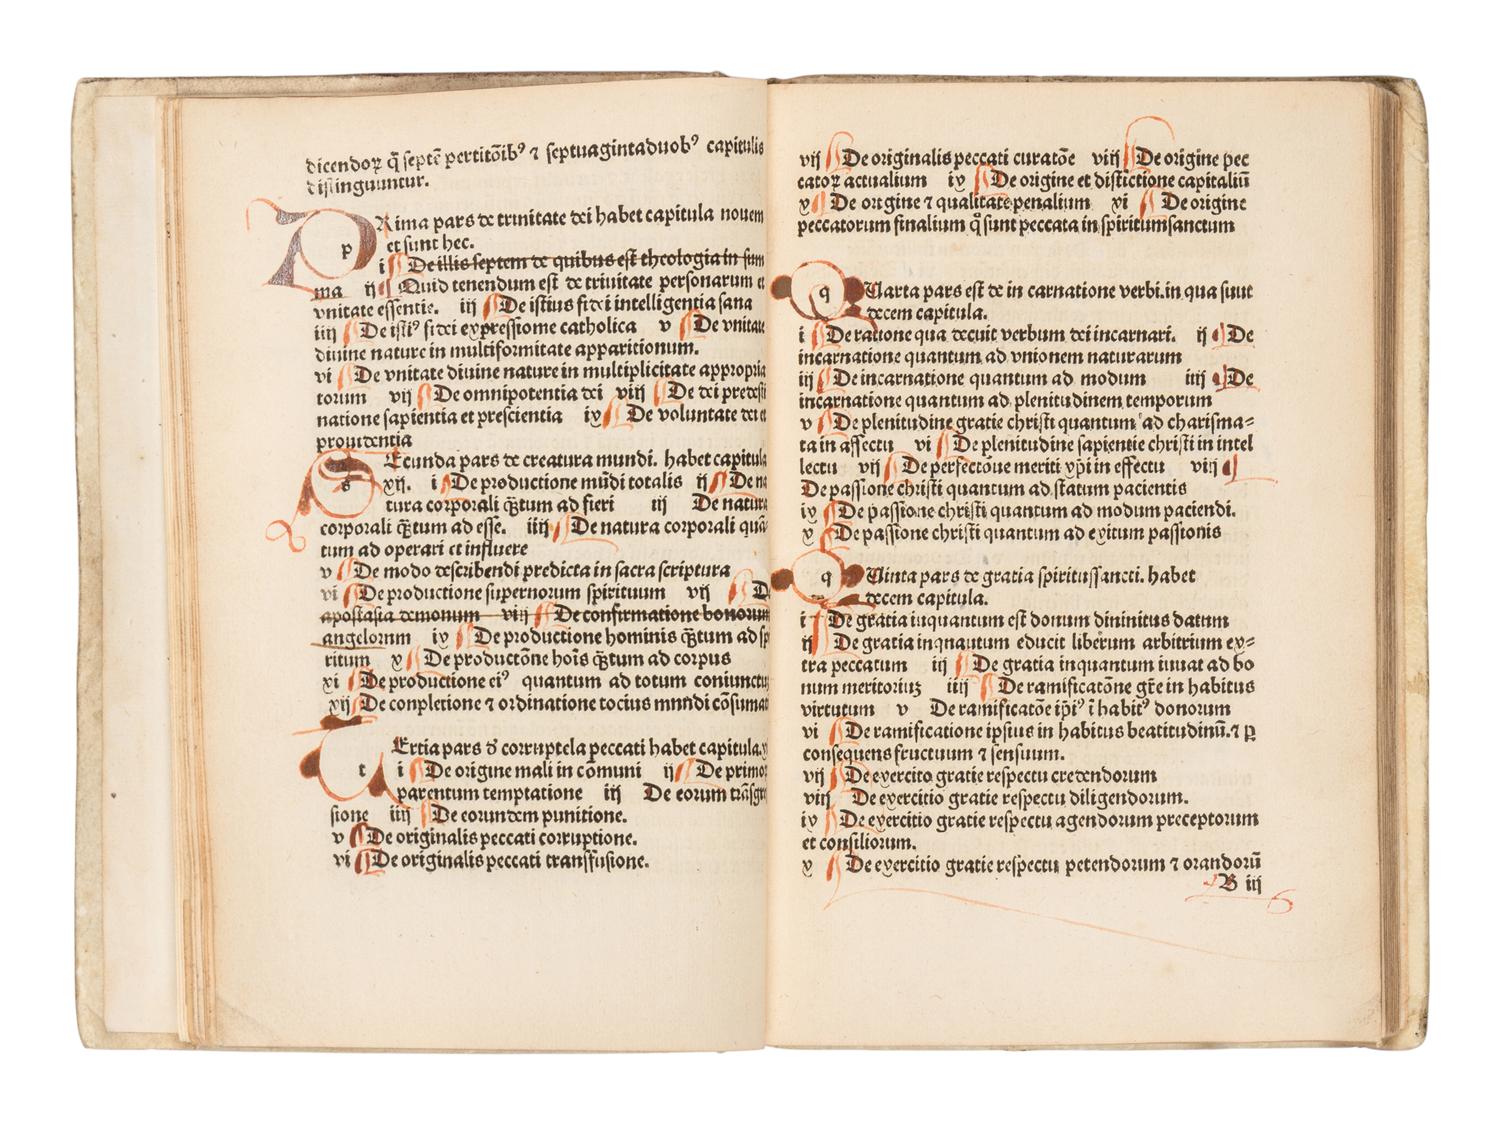 dicendoꝝ q̄ septē pertitōibꝰ ⁊ septuagintaduobꝰ capitulis
distinguuntur.
pRima pars de trinitate dei habet capitula nouem
et sunt hec.
i De illis septem de quibus est theologia in sum
ma ij Quid tenendum est de trinitate personarum et
vnitate essentie. iij De istius fidei intelligentia sana
iiij De istiꝰ fidei expressiome catholica v De vnitate
diuine nature in multiformitate apparitionum.
vi De vnitate diuine nature in multiplicitate appropria
torum vij De omnipotentia dei viij De dei predesti
natione sapientia et prescientia ix De voluntate dei et
prouidentia
sEcunda pars de creatura mundi. habet capitula
xij. i De productione mūdi totalis ij De na
tura corporali q̄tum ad fieri iij De natura
corporali q̄tum ad esse. iiij De natura corporali quā
tum ad operari et influere
v De modo describendi predicta in sacra scriptura
vi De productione supernorum spirituum vij D
apostasia demonum viij De confirmatione bonorum
angelorum ix De productione hominis q̄tum ad sp
ritum x De productōne hoīs q̄tum ad corpus
xi De productione eiꝰ quantum ad totum coniunctu
xij De conpletione ⁊ ordinatione tocius mnndi cōsumat
tErtia pars đ corruptela peccati habet capitula.x
i De origine mali in cōmuni ij De primor
parentum temptatione iij De eorum trāsgre
sione iiij De eorundem punitione.
v De originalis peccati corruptione.
vi De originalis peccati transfusione.
vij De originalis peccati curatōe viij De origine pec
catoꝝ actualium ix De origine et distictione capitaliū
x De origine ⁊ qualitate penalium xi De origine
peccatorum finalium q̄ sunt peccata in spiritumsanctum
qUarta pars est de in carnatione verbi.in qua suut
decem capitula.
i De ratione qua decuit verbum dei incarnari. ij De
incarnatione quantum ad vnionem naturarum
iij De incarnatione quantum ad modum iiij De
incarnatione quantum ad plenitudinem temporum
v De plenitudine gratie christi quantum ad charisma⸗
ta in affectu vi De plenitudine sapientie christi in intel
lectu vij De perfectōne meriti xp̄i in effectu viij
De passione christi quantum ad statum pacientis
ix De passione christi quantum ad modum paciendi.
x De passione christi quantum ad exitum passionis
qUinta pars de gratia spiritussancti. habet
decem capitula.
i De gratia inquantum est donum dininitus datum
ij De gratia inqnautum educit liberum arbitrium ex⸗
tra peccatum iij De gratia inquantum iuuat ad bo
num meritoriuꝫ iiij De ramificatōne gr̄e in habitus
virtutum v De ramificatōe ip̄iꝰ ī habitꝰ donorum
vi De ramificatione ipsius in habitus beatitudinū.⁊ ꝑ
consequens fructuum ⁊ sensuum.
vij De exercito gratie respectu credendorum
viij De exercitio gratie respectu diligendorum.
ix De exercitio gratie respectu agendorum preceptorum
et consiliorum.
x De exercitio gratie respectu petendorum ⁊ orandorū
B iij